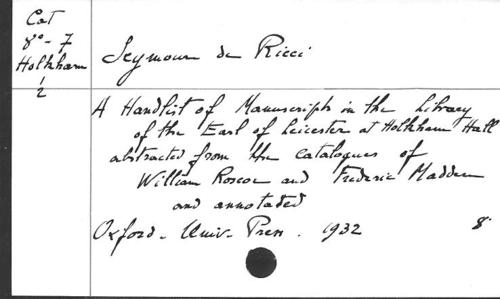 Cat
8° - 7
Holkham
/
2
Seymour de Ricci
A Handlist of Manuscripts in the Library
of the Earl of Leicester at Holkham Hall
abstracted from the catalogues of
William Roscoe and Frederic Madden
and annotated
Oxford. Univ. Press. 1932 8°